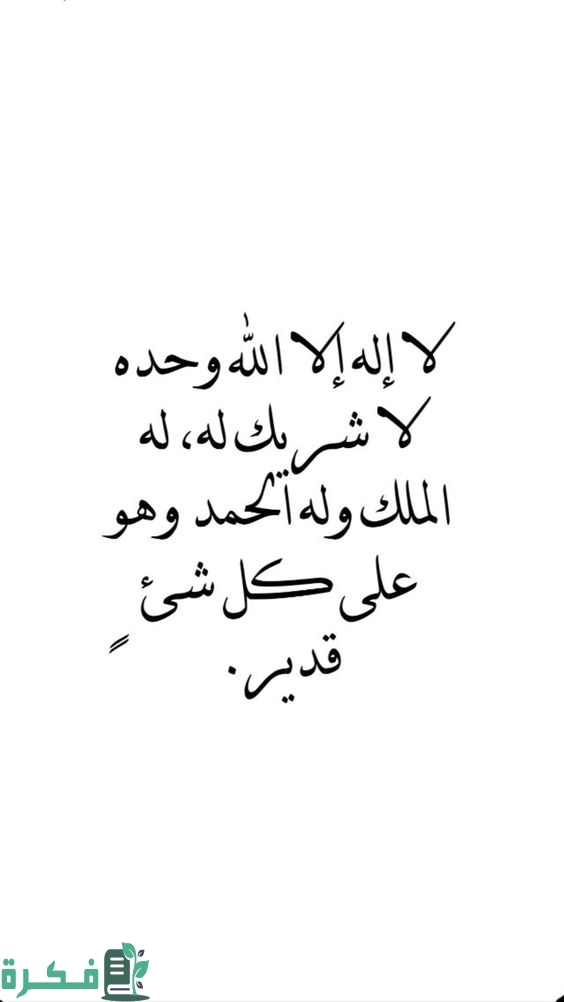 لا إله إلا الله وحده
لا شريك له، له
الملك وله الحمد وهو
على كل شئ
قدير.
فكرة